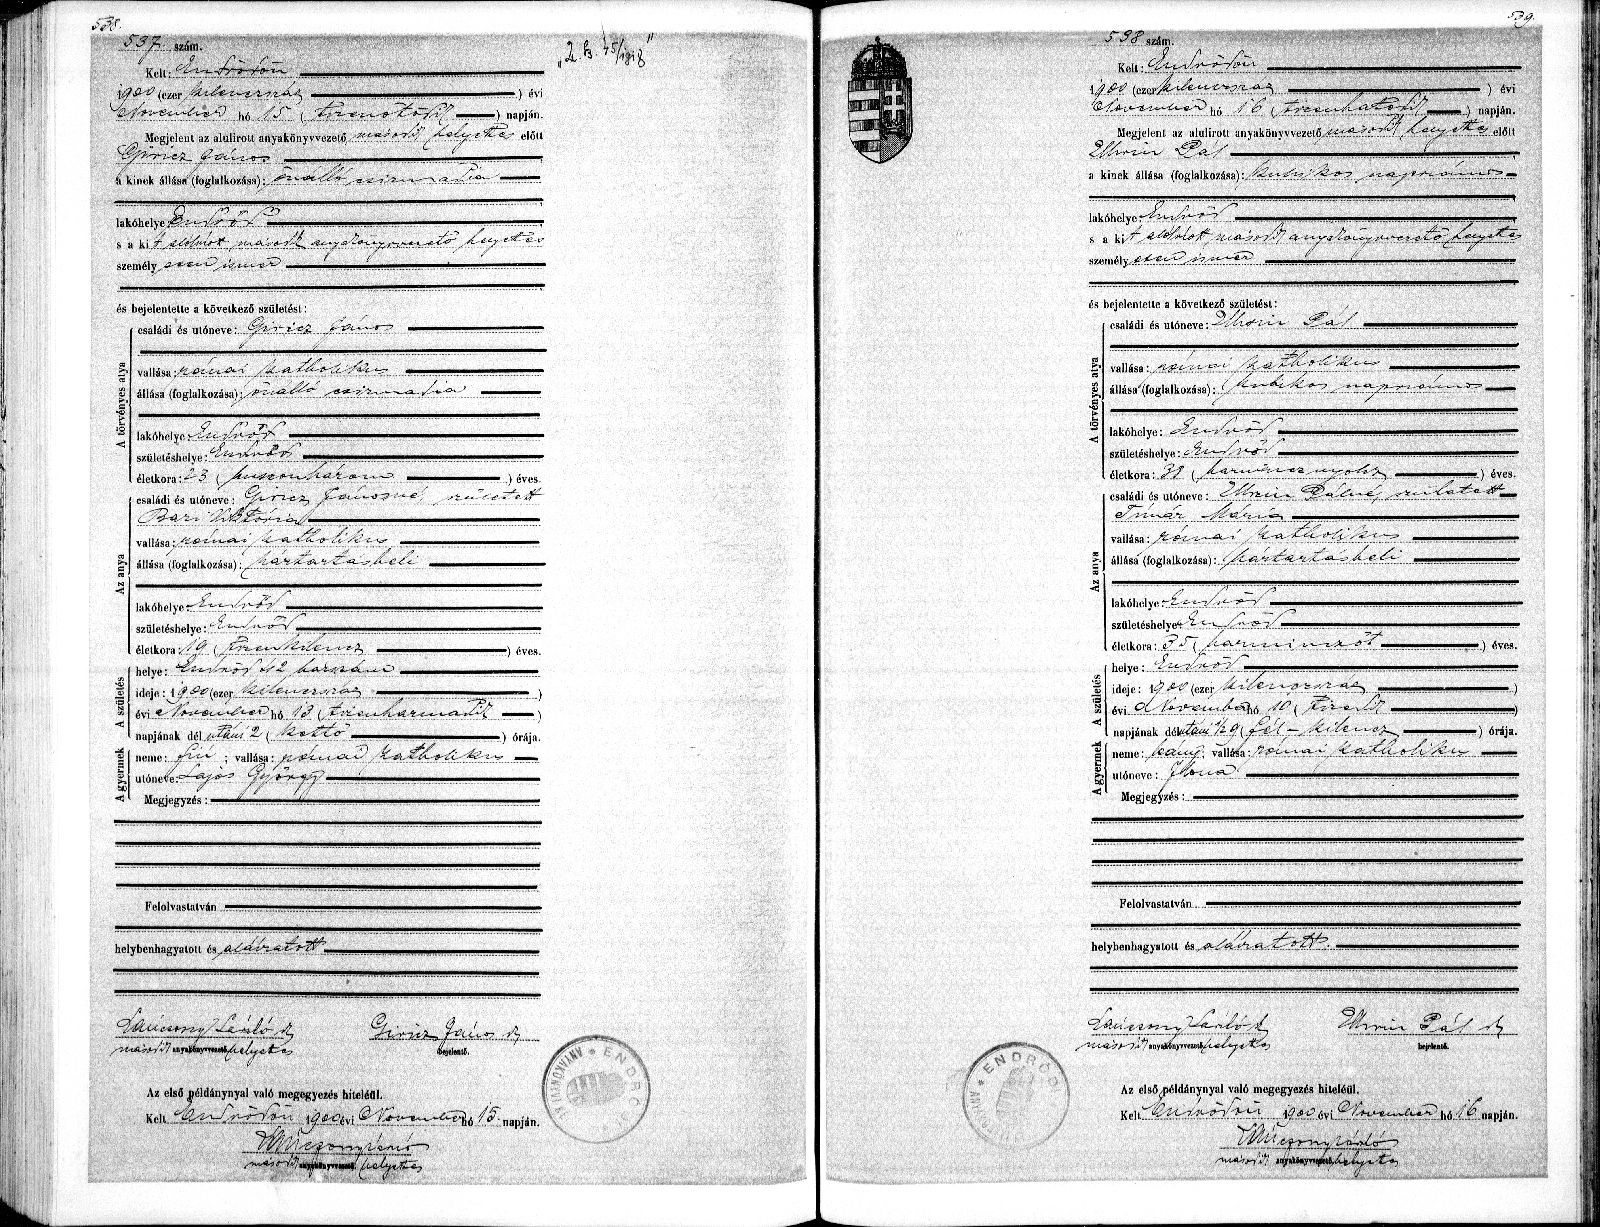 538.
537 szám.
Kelt: Endrődön
1900 (ezer kilenczszáz) évi
November hó 15 (tizenötödik) napján.
Megjelent az alulirott anyakönyvvezető második helyettes előtt
Giricz János
a kinek állása (foglalkozása): önálló csizmadia
lakóhelye Endrőd
s a kit aldirott második anyakönyvvezető helyettes
személyesen ismer
és bejelentette a következő születést:
A törvényes atya
családi és utóneve: Giricz János
vallása: római katholikus
állása (foglalkozása): önálló csizmadia
lakóhelye: Endrőd
születéshelye: Endrőd
életkora: 23 (huszonhárom) éves.
Az anya
családi és utóneve: Giricz Jánosné, született
Bari Viktória
vallása: római katholikus
állása (foglalkozása): háztartásbeli
lakóhelye: Endrőd
születéshelye: Endrőd
életkora: 19 (tizenkilencz) éves.
A születés
helye: Endrőd 42 házszám
ideje: 1900 (ezer kilenczszáz)
évi November hó 13 (tizenharmadik)
napjának dél utáni 2 (kettő) órája.
A gyermek
neme: fiú; vallása: római katholikus
utóneve: Lajos György
Megjegyzés:
Felolvastatván
helybenhagyatott és aláiratott
László
második anyakönyvvezető helyettes
Giricz János
bejelentő.
Az első példánynyal való megegyezés hiteléül.
Kelt Endrődön 1900 évi November hó 15. napján.
második anyakönyvvezető helyettes
ENDRŐD
539.
538 szám.
Kelt: Endrődön
1900 (ezer kilenczszáz) évi
November hó 16 (tizenhatodik) napján.
Megjelent az alulirott anyakönyvvezető második helyettes előtt
Uhrin Pál
a kinek állása (foglalkozása): kubikos napszámos
lakóhelye: Endrőd
s a kit aldirott második anyakönyvvezető helyettes
személyesen ismer
és bejelentette a következő születést:
A törvényes atya
családi és utóneve: Uhrin Pál
vallása: római katholikus
állása (foglalkozása): kubikos napszámos
lakóhelye: Endrőd
születéshelye: Endrőd
életkora: 38 (harmincznyolcz) éves.
Az anya
családi és utóneve: Uhrin Pálné, született
Timár Mária
vallása: római katholikus
állása (foglalkozása): háztartásbeli
lakóhelye: Endrőd
születéshelye: Endrőd
életkora: 35 (harminczöt) éves.
A születés
helye: Endrőd
ideje: 1900 (ezer kilenczszáz)
évi November hó 10 (tizedik)
napjának dél utáni 1/2 9 (fél-kilencz) órája.
A gyermek
neme: leány; vallása: római katholikus
utóneve: Ilona
Megjegyzés:
Felolvastatván
helybenhagyatott és aláiratott
László
második anyakönyvvezető helyettes
Uhrin Pál
bejelentő.
Az első példánynyal való megegyezés hiteléül.
Kelt Endrődön 1900 évi November hó 16. napján.
második anyakönyvvezető helyettes
ENDRŐD